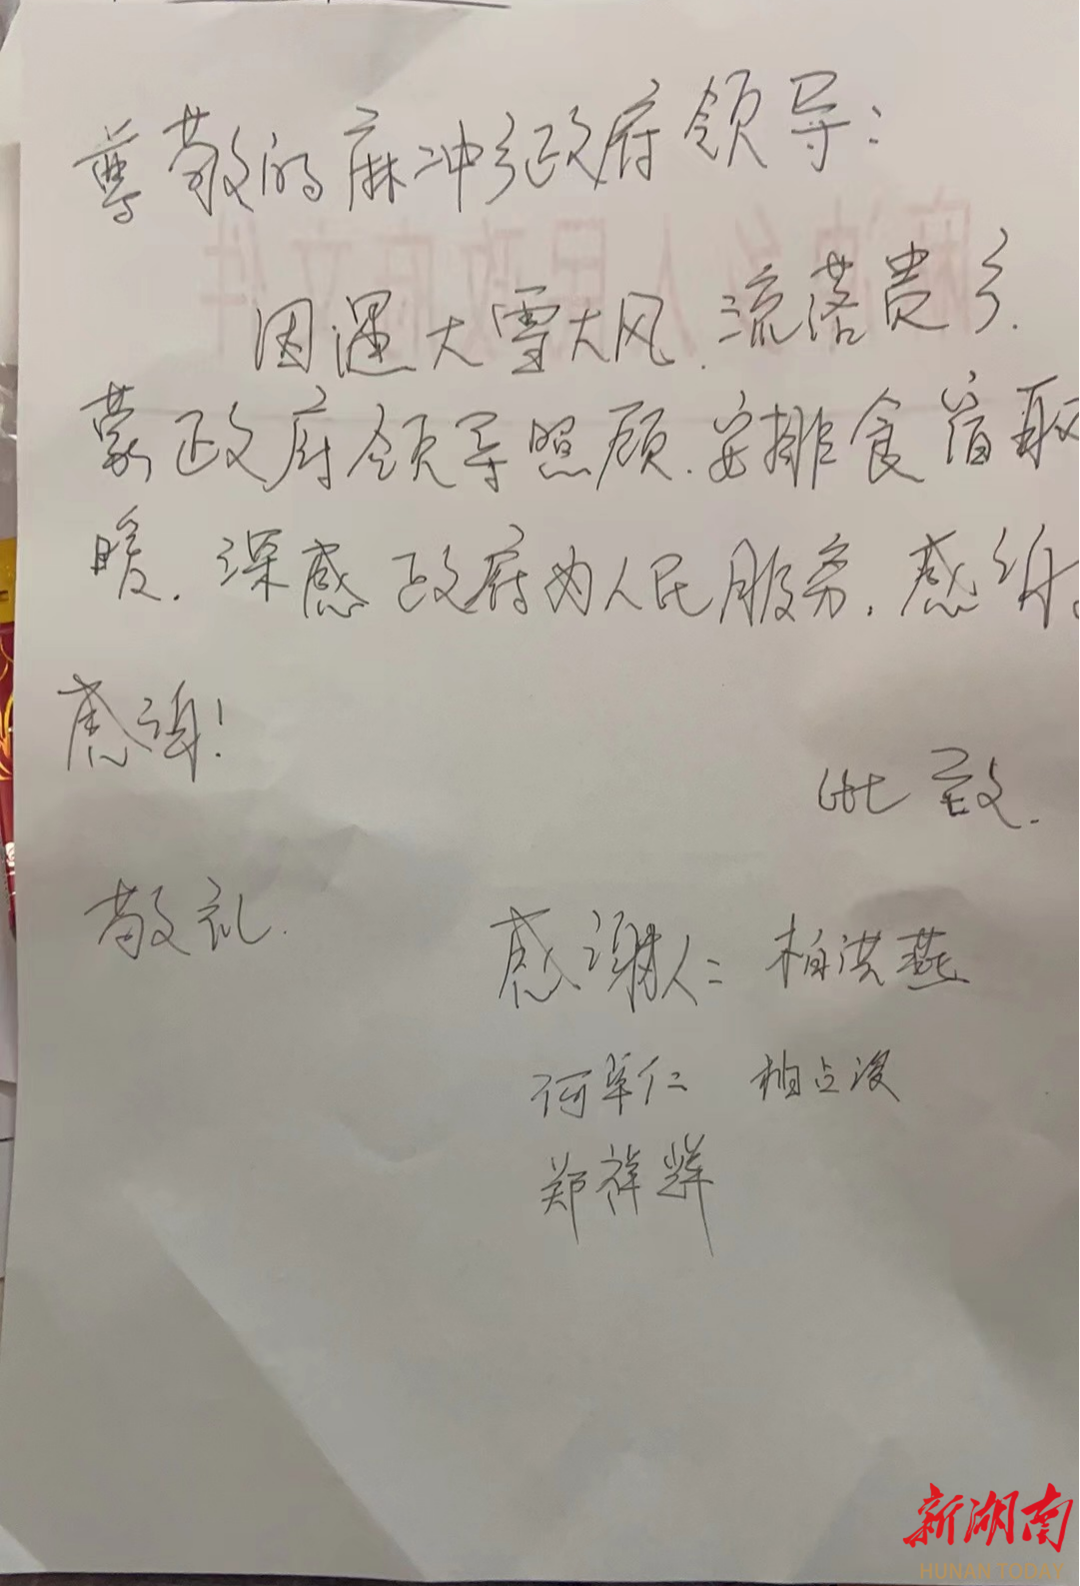 尊敬的麻冲乡政府领导：
因遇大雪大风.流落贵乡.
蒙政府领导照顾.安排食宿取
暖.深感政府为人民服务.感谢
感谢！
此致.
敬礼.
感谢人：柏洪燕
何军仁 柏占浚
郑祥辉
麻冲乡人民政府文件
新湖南
HUNAN TODAY